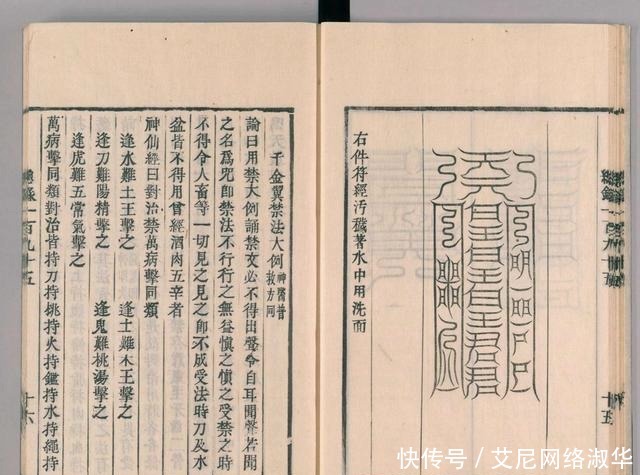 右件符經污穢著水中用洗面
十五
千金翼禁法大例神醫普救方同
論曰用禁大例誦禁文必不得出聲令自耳聞聲若聞
之名為咒即禁法不行行之無益慎之慎之受禁之時
不得令人畜等一切見之見之即不成受法時刀及水
盆皆不得用曾經酒肉五辛者
神仙經曰對治禁萬病擊同類
逢水難土王擊之　逢土難木王擊之
逢刀難陽精擊之　逢鬼難桃湯擊之
逢虎難五常氣擊之
萬病擊同類對治皆持刀持桃持火持鑑持水持繩持
一百九十五
十六
快传号／艾尼网络淑华